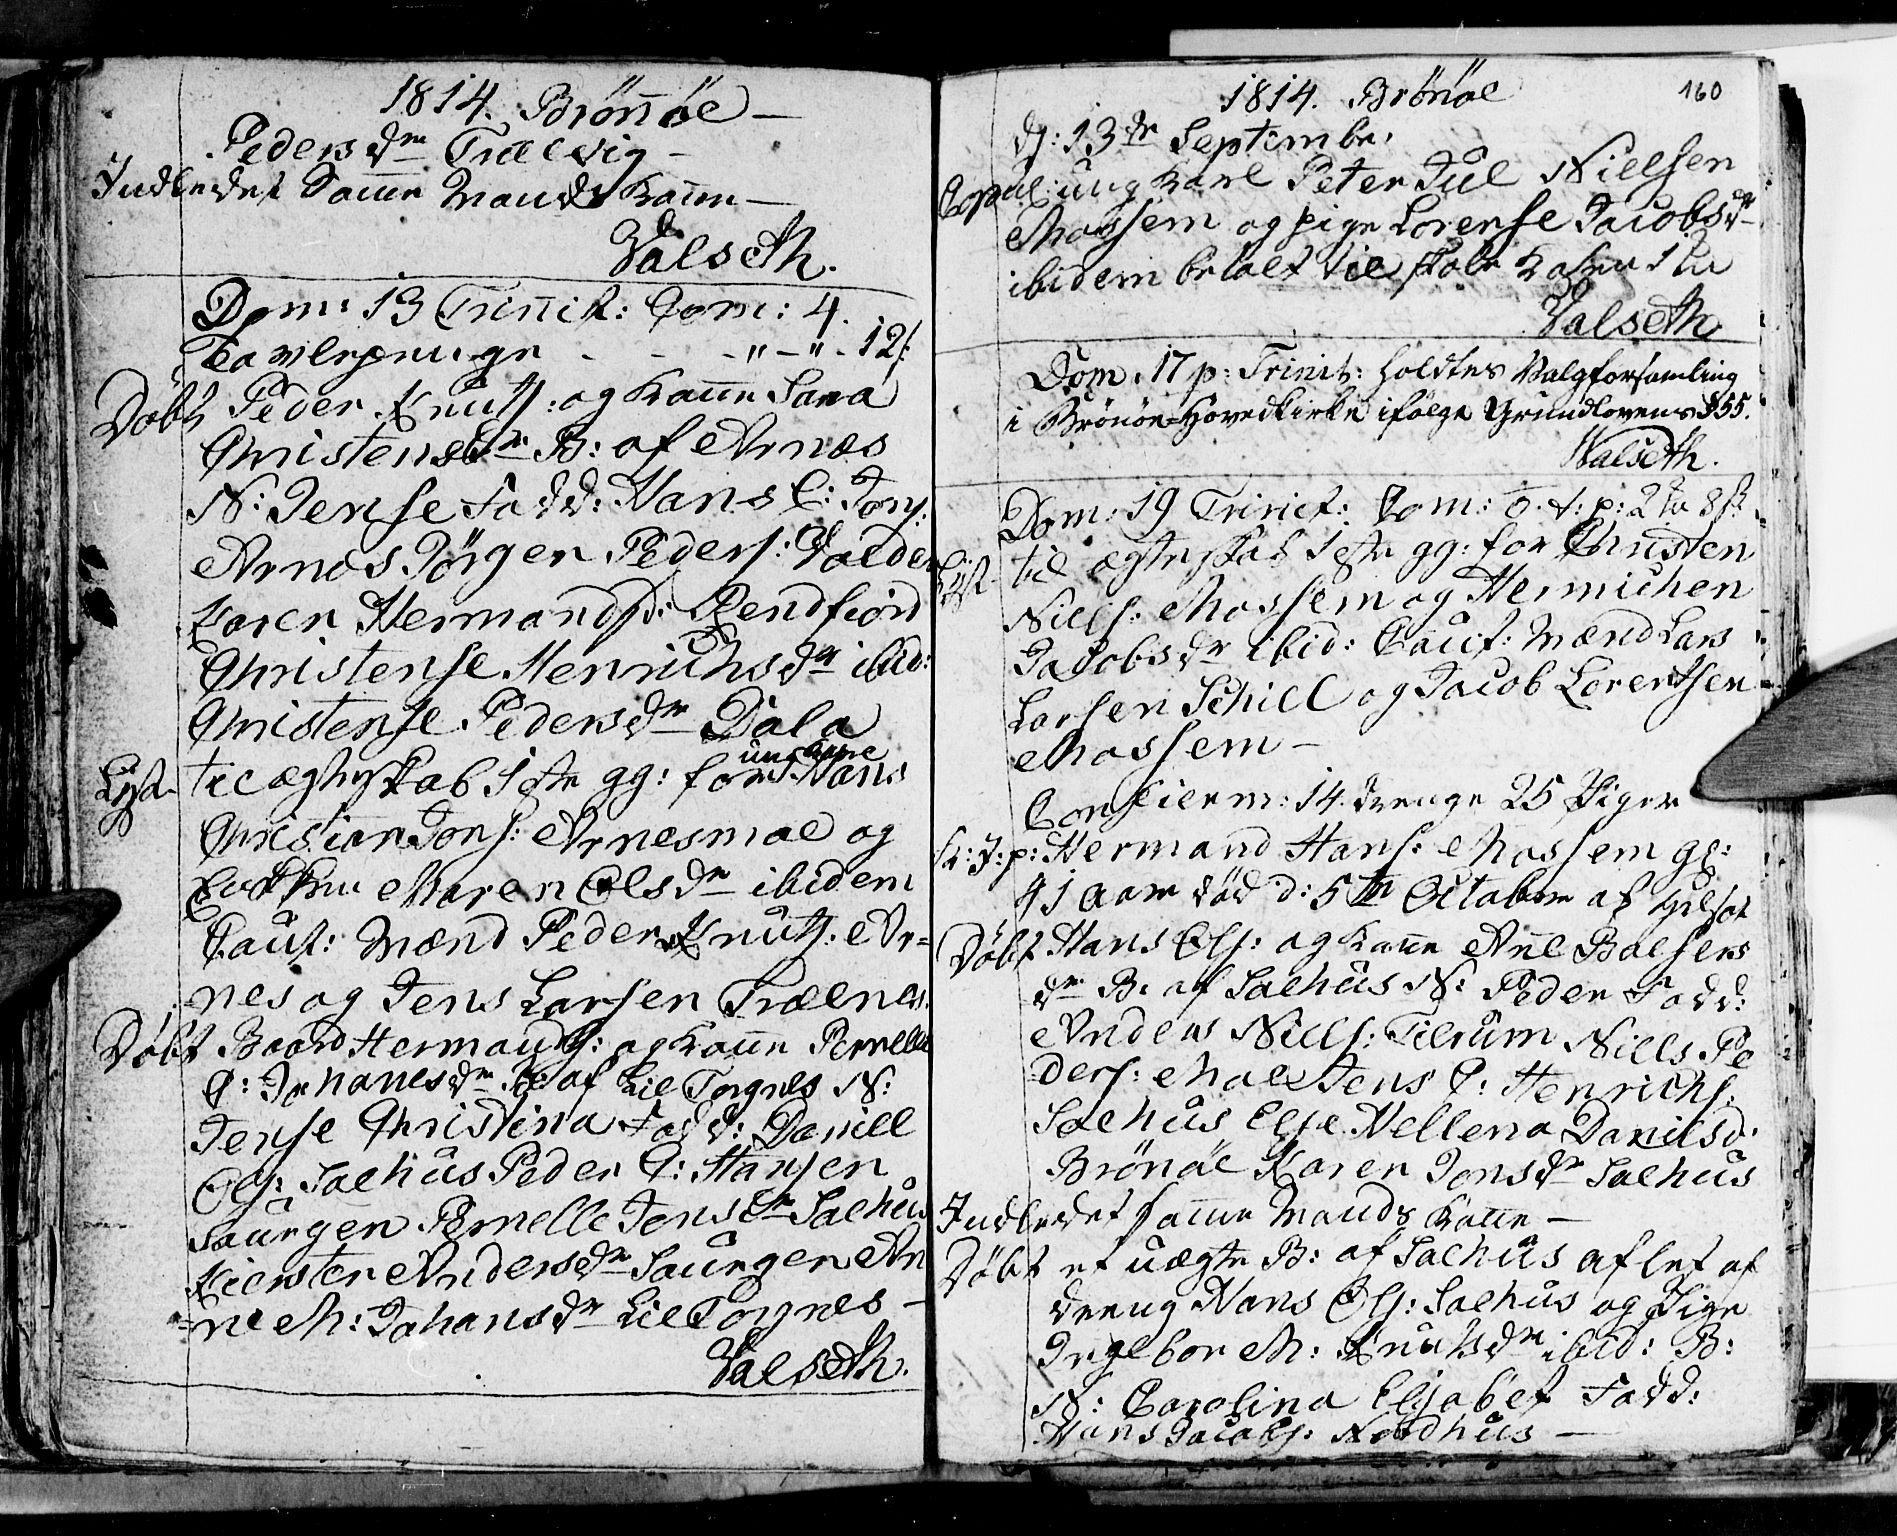 1814. Brönöe
Pedersdr Trælvig
Indledet Samme Mands Kone
Valseth.
Dom: 13 Trinit: Com: 4.
Tavlepenge - - - " - " - 12 s:
Döbt Peder Knuts: og Kone Sara
Christensdr B: af Arnæs
N: Jense Fadd: Hans C: Jons:
Arnæs Jörgen Peders: Valden
Karen Hermandsd: Rendfiord
Christense Henrichsdr ibid:
Christense Pedersdr Dala
ungkarl
Lyst til ægteskab 1ste gg: for Hans
Christian Jons: Arnesmoe og
Maren Olsdr ibidem
Caut: Mænd Peder Knuts: Ar=
nes og Jens Larsen Trælnes.
Döbt Baard Hermands: og Kone Pernelle
C: Johanesdr B: af Lil Torgnes N:
Jense Christina Fadd: Daniel
Ols: Salhus Peder C: Hansen
Saurgen Pernelle Jensdr Salhus
Kiersten Andersdr Saurgen An
ne M: Johansdr Lil Torgnes
Valseth.
1814. Brönöe
160
d: 13de September
Copul: ung Karl Peter Jul Nielsen
Mossem og pige Lorense Jacobsdr
ibidem betalt til skole Kasen 1
Valseth
Dom. 17 p: Trinit: holdtes Valgforsamling
i Brönöe=Hovedkirke ifölge Grundlovens §55.
Walseth.
Dom: 19 Trinit: Com: 0. t: p: 2 8 s
Lyst til ægteskab 1ste gg: for Christen
Niels: Mossem og Hermichen
Jacobsdr ibid: Caut: Mænd Lars
Larsen Schill og Jacob Lorentsen
Mossem
Confierm: 14 drenge 25 Piger
Hermand Hans: Mossem gl:
41 aar död d: 5te Octobr af
Döbt Hans Ols: og Kone Ane Balsers
dr B: af Salhus N: Peder Fadd:
Anders Niels: Tilrum Niels Pe
ders: Moe Jens C: Henrichs:
Salhus Else Hellena Danilsd:
Brönöe Karen Jonsdr Salhus
Indledet samme Mands Kone
Döbt et uægte B: af Salhus aflet af
dreng Hans Ols: Salhus og Pige
Ingebor M: Knutsdr ibid: B:
N: Carolina Elisabet Fadd:
Hans Jacobs: Nordhus